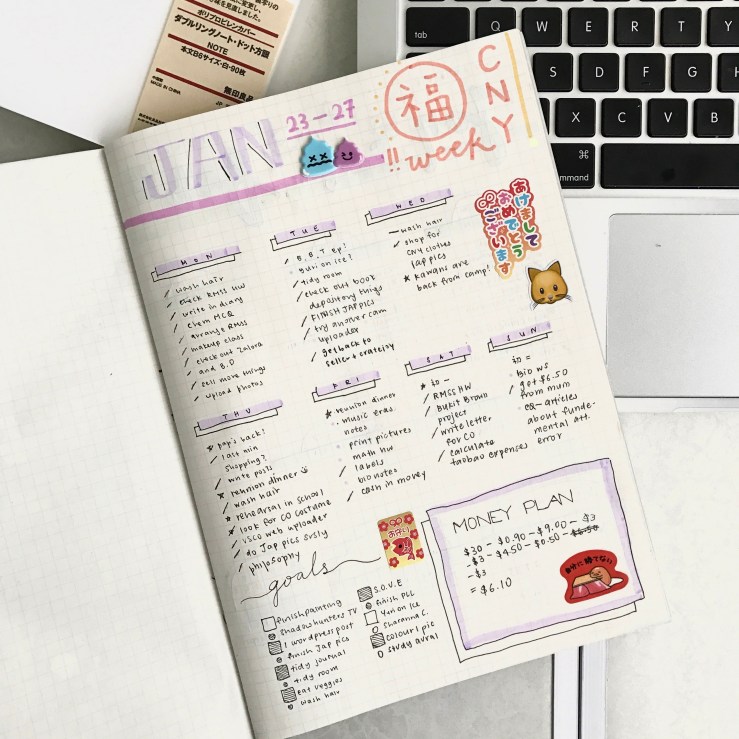 味を見直しました。
ポリプロピレンカバー
ダブルリングノート・ドット方眼
NOTE
本文B6サイズ・白・90枚
中国製
MADE IN CHINA
無印良品
JAN
23-27
福
CNY
!! week
MON
/ wash hair
/ check RMSS HW
/ write in diary
/ chem MCQ
/ arrange RMSS
/ makeup class
/ check out Zalora
and B.D
/ sell more things
/ upload photos
TUE
/ B.B.T ep?
yuri on ice?
/ tidy room
/ check out book
depository things
/ FINISH JAP PICS
/ try another cam
uploader
/ get back to
seller +
WED
- wash hair
/ shop for
CNY clothes
/ jap pics
★ kawans are
back from camp!
あけまして
おめでとう
ございます
THU
★ pap's back?
/ last min
shopping?
/ write posts
★ reunion dinner
/ wash hair
★ rehearsal in school
★ look for CO costume
/ VSCO web uploader
/ do Jap pics svsly
/ philosophy
FRI
★ reunion dinner
· music eras
notes
· print pictures
· math hw
/ labels
· bio notes
/ cash in money
SAT
★ 初一
/ RMSS HW
/ Bukit Brown
project
/ write letter
for CO
/ calculate
taobao expenses
SUN
初二
· bio WS
/ got $6.50
from mum
/ CQ - articles
about funda-
mental att.
error
goals
finish painting
shadowhunters TV
1 wordpress post
finish Jap pics
tidy journal
tidy room
eat veggies
wash hair
S.O.V.E
finish PLL
Yuri on Ice
Sharanna C.
colour 1 pic
study aural
MONEY PLAN
$30 - $0.90 - $9.00 - $3
- $3 - $4.50 - $0.50 - $6.50
- $3
= $6.10
自分に勝てない
tab
Q W E R T Y
S D F G H
Z X C V B
⌘
command